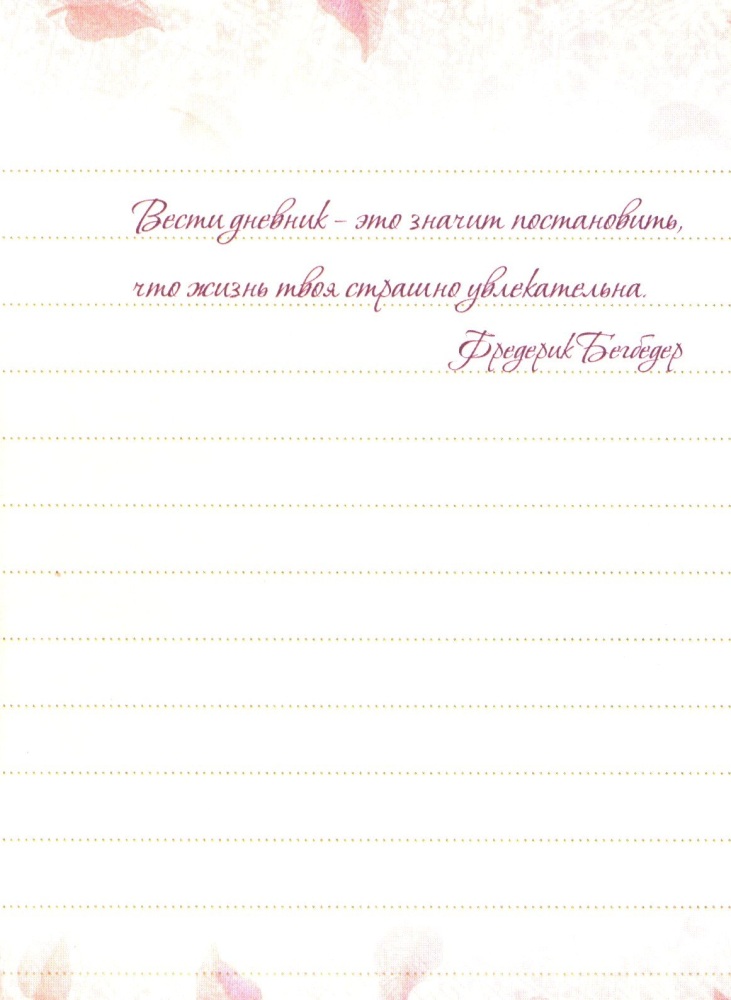 Вести дневник – это значит постановить,
что жизнь твоя страшно увлекательна.
Фредерик Бегбедер